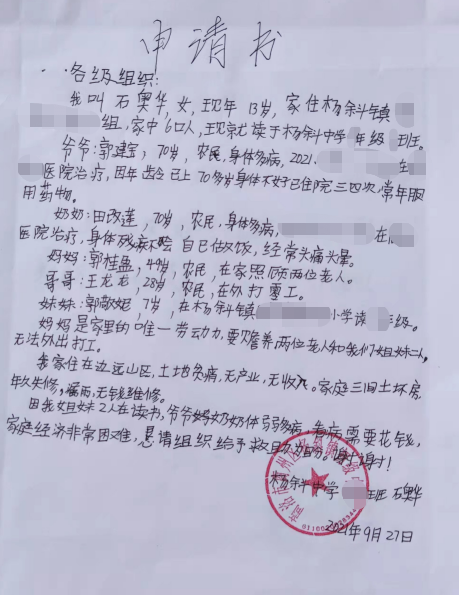 申请书
各级组织:
我叫石奥华,女,现年13岁,家住杨斜镇
组,家中6口人,现就读于杨斜中学 年级 班。
爷爷:郭建宝,70岁,农民,身体多病,2021. 在
医院治疗,因年龄已上70多岁身体不好已住院三四次常年服
用药物。
奶奶:田改莲,70岁,农民,身体多病, 在
医院治疗,身体残病不能自已做饭,经常头痛头晕。
妈妈:郭桂盈,49岁,农民,在家照顾两位老人。
哥哥:王龙龙,28岁,农民,在外打零工。
妹妹:郭敬妮,7岁,在杨斜镇 小学读 年级。
妈妈是家里的唯一劳动力,要赡养两位老人和我们姐妹二人,
无法外出打工。
我家住在边远山区,土地贫瘠,无产业,无收入。家庭三间土坯房,
年久失修,漏雨,无钱维修。
因我姐妹2人在读书,爷爷奶奶体弱多病,看病需要花钱,
家庭经济非常困难,恳请组织给予救助为盼。谢谢!
杨斜中学 班 石奥华
2021年9月27日